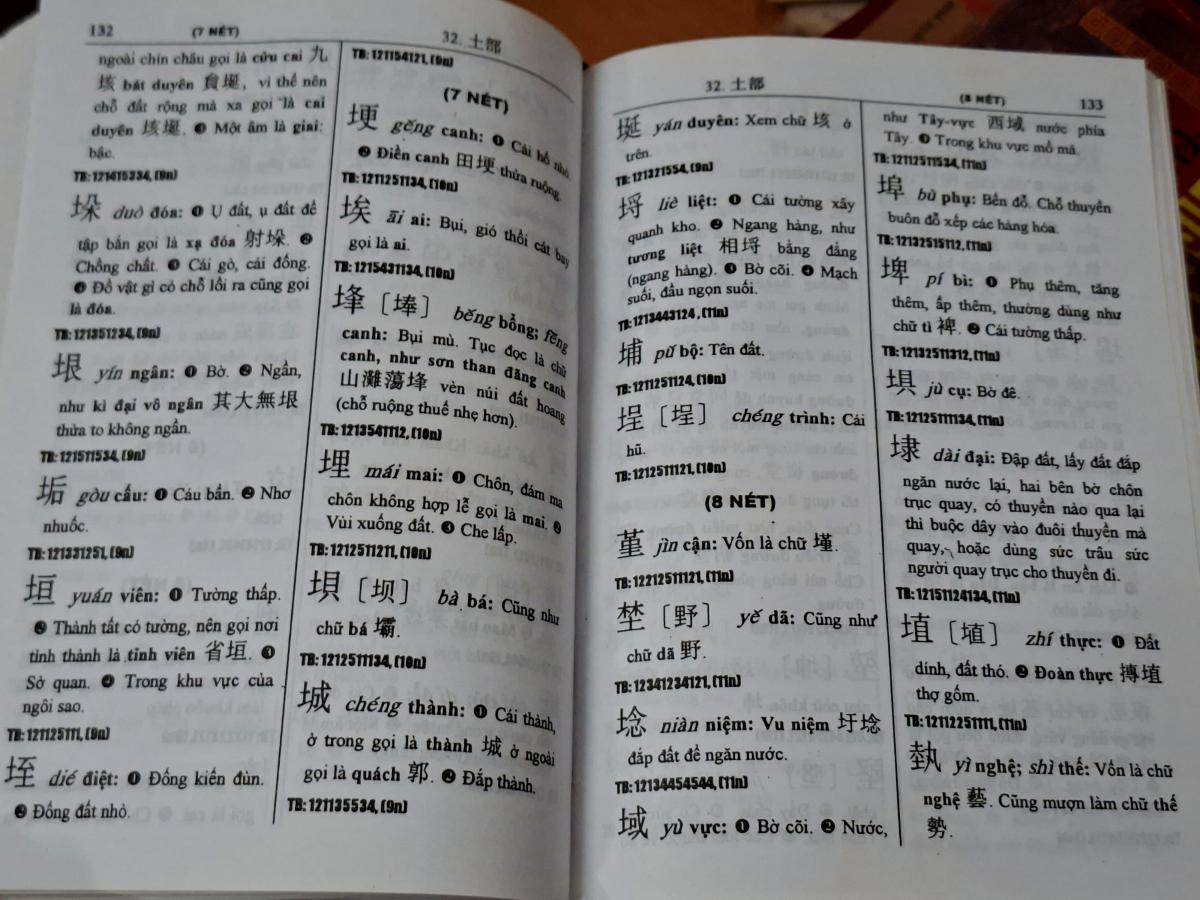 132 (7 NÉT) 32. 土部
ngoài chín châu gọi là cửu cai 九
垓 bát duyên 負埏, vì thế nên
chỗ đất rộng mà xa gọi là cai
duyên 垓埏. ❸ Một âm là giai:
bậc.
TB: 121415334, (9n)
垛 duǒ đóa: ❶ Ụ đất, ụ đất để
tập bắn gọi là xạ đóa 射垛. ❷
Chồng chất. ❸ Cái gò, cái đống.
❹ Đồ vật gì có chỗ lồi ra cũng gọi
là đóa.
TB: 121351234, (9n)
垠 yín ngân: ❶ Bờ. ❷ Ngần,
như kì đại vô ngân 其大無垠
thửa to không ngần.
TB: 121511534, (9n)
垢 gòu cấu: ❶ Cáu bẩn. ❷ Nhơ
nhuốc.
TB: 121331251, (9n)
垣 yuán viên: ❶ Tường thấp.
❷ Thành tất có tường, nên gọi nơi
tỉnh thành là tỉnh viên 省垣. ❸
Sở quan. ❹ Trong khu vực của
ngôi sao.
TB: 121125111, (9n)
垤 dié điệt: ❶ Đống kiến đùn.
❷ Đống đất nhỏ.
TB: 121154121, (9n)
(7 NÉT)
埂 gěng canh: ❶ Cái hố nhỏ.
❷ Điền canh 田埂 thửa ruộng.
TB: 1211251134, (10n)
埃 āi ai: Bụi, gió thổi cát bay
gọi là ai.
TB: 1215431134, (10n)
埄 [埲] běng bổng; fēng
canh: Bụi mù. Tục đọc là chữ
canh, như sơn than đãng canh
山灘蕩埄 vèn núi đất hoang
(chỗ ruộng thuế nhẹ hơn).
TB: 1213541112, (10n)
埋 mái mai: ❶ Chôn, đám ma
chôn không hợp lễ gọi là mai. ❷
Vùi xuống đất. ❸ Che lấp.
TB: 1212511211, (10n)
垻 [坝] bà bá: Cũng như
chữ bá 壩.
TB: 1212511134, (10n)
城 chéng thành: ❶ Cái thành,
ở trong gọi là thành 城 ở ngoài
gọi là quách 郭. ❷ Đắp thành.
TB: 121135534, (9n)
32. 土部 (8 NÉT) 133
埏 yán duyên: Xem chữ 垓 ở
trên.
TB: 121321554, (9n)
埒 liè liệt: ❶ Cái tường xây
quanh kho. ❷ Ngang hàng, như
tương liệt 相埒 bằng đẳng
(ngang hàng). ❸ Bờ cõi. ❹ Mạch
suối, đầu ngọn suối.
TB: 1213443124, (11n)
埔 pǔ bộ: Tên đất.
TB: 1211251124, (10n)
埕 [埕] chéng trình: Cái
hũ.
TB: 1212511121, (10n)
(8 NÉT)
堇 jìn cận: Vốn là chữ 墐.
TB: 12212511121, (11n)
埜 [野] yě dã: Cũng như
chữ dã 野.
TB: 12341234121, (11n)
埝 niàn niệm: Vu niệm 圩埝
đắp đất để ngăn nước.
TB: 12134454544, (11n)
域 yù vực: ❶ Bờ cõi. ❷ Nước,
như Tây-vực 西域 nước phía
Tây. ❸ Trong khu vực mồ mả.
TB: 12112511534, (11n)
埠 bù phụ: Bến đỗ. Chỗ thuyền
buôn đỗ xếp các hàng hóa.
TB: 12132515112, (11n)
埤 pí bì: ❶ Phụ thêm, tăng
thêm, ấp thêm, thường dùng như
chữ tì 裨. ❷ Cái tường thấp.
TB: 12132511312, (11n)
埧 jù cụ: Bờ đê.
TB: 12125111134, (11n)
埭 dài đại: Đập đất, lấy đất đắp
ngăn nước lại, hai bên bờ chôn
trục quay, có thuyền nào qua lại
thì buộc dây vào đuôi thuyền mà
quay, hoặc dùng sức trâu sức
người quay trục cho thuyền đi.
TB: 12151124134, (11n)
埴 [埴] zhí thực: ❶ Đất
dính, đất thó. ❷ Đoàn thực 摶埴
thợ gốm.
TB: 12112251111, (11n)
埶 yì nghệ; shì thế: Vốn là chữ
nghệ 藝. Cũng mượn làm chữ thế
勢.